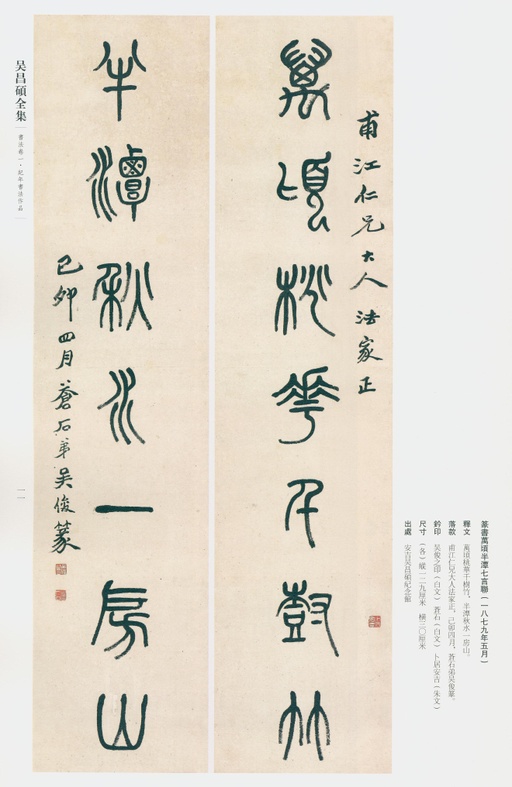 萬頃桃華千樹竹
甫江仁兄大人法家正
半潭秋水一房山
己卯四月蒼石弟吴俊篆
吴昌碩全集
書法卷一·紀年書法作品
一一
篆書萬頃半潭七言聯（一八七九年五月）
釋文 萬頃桃華千樹竹，半潭秋水一房山。
落款 甫江仁兄大人法家正，己卯四月，蒼石弟吴俊篆。
鈐印 吴俊之印（白文） 蒼石（白文） 卜居安吉（朱文）
尺寸 （各）縱一二九厘米 橫三〇厘米
出處 安吉吴昌碩紀念館